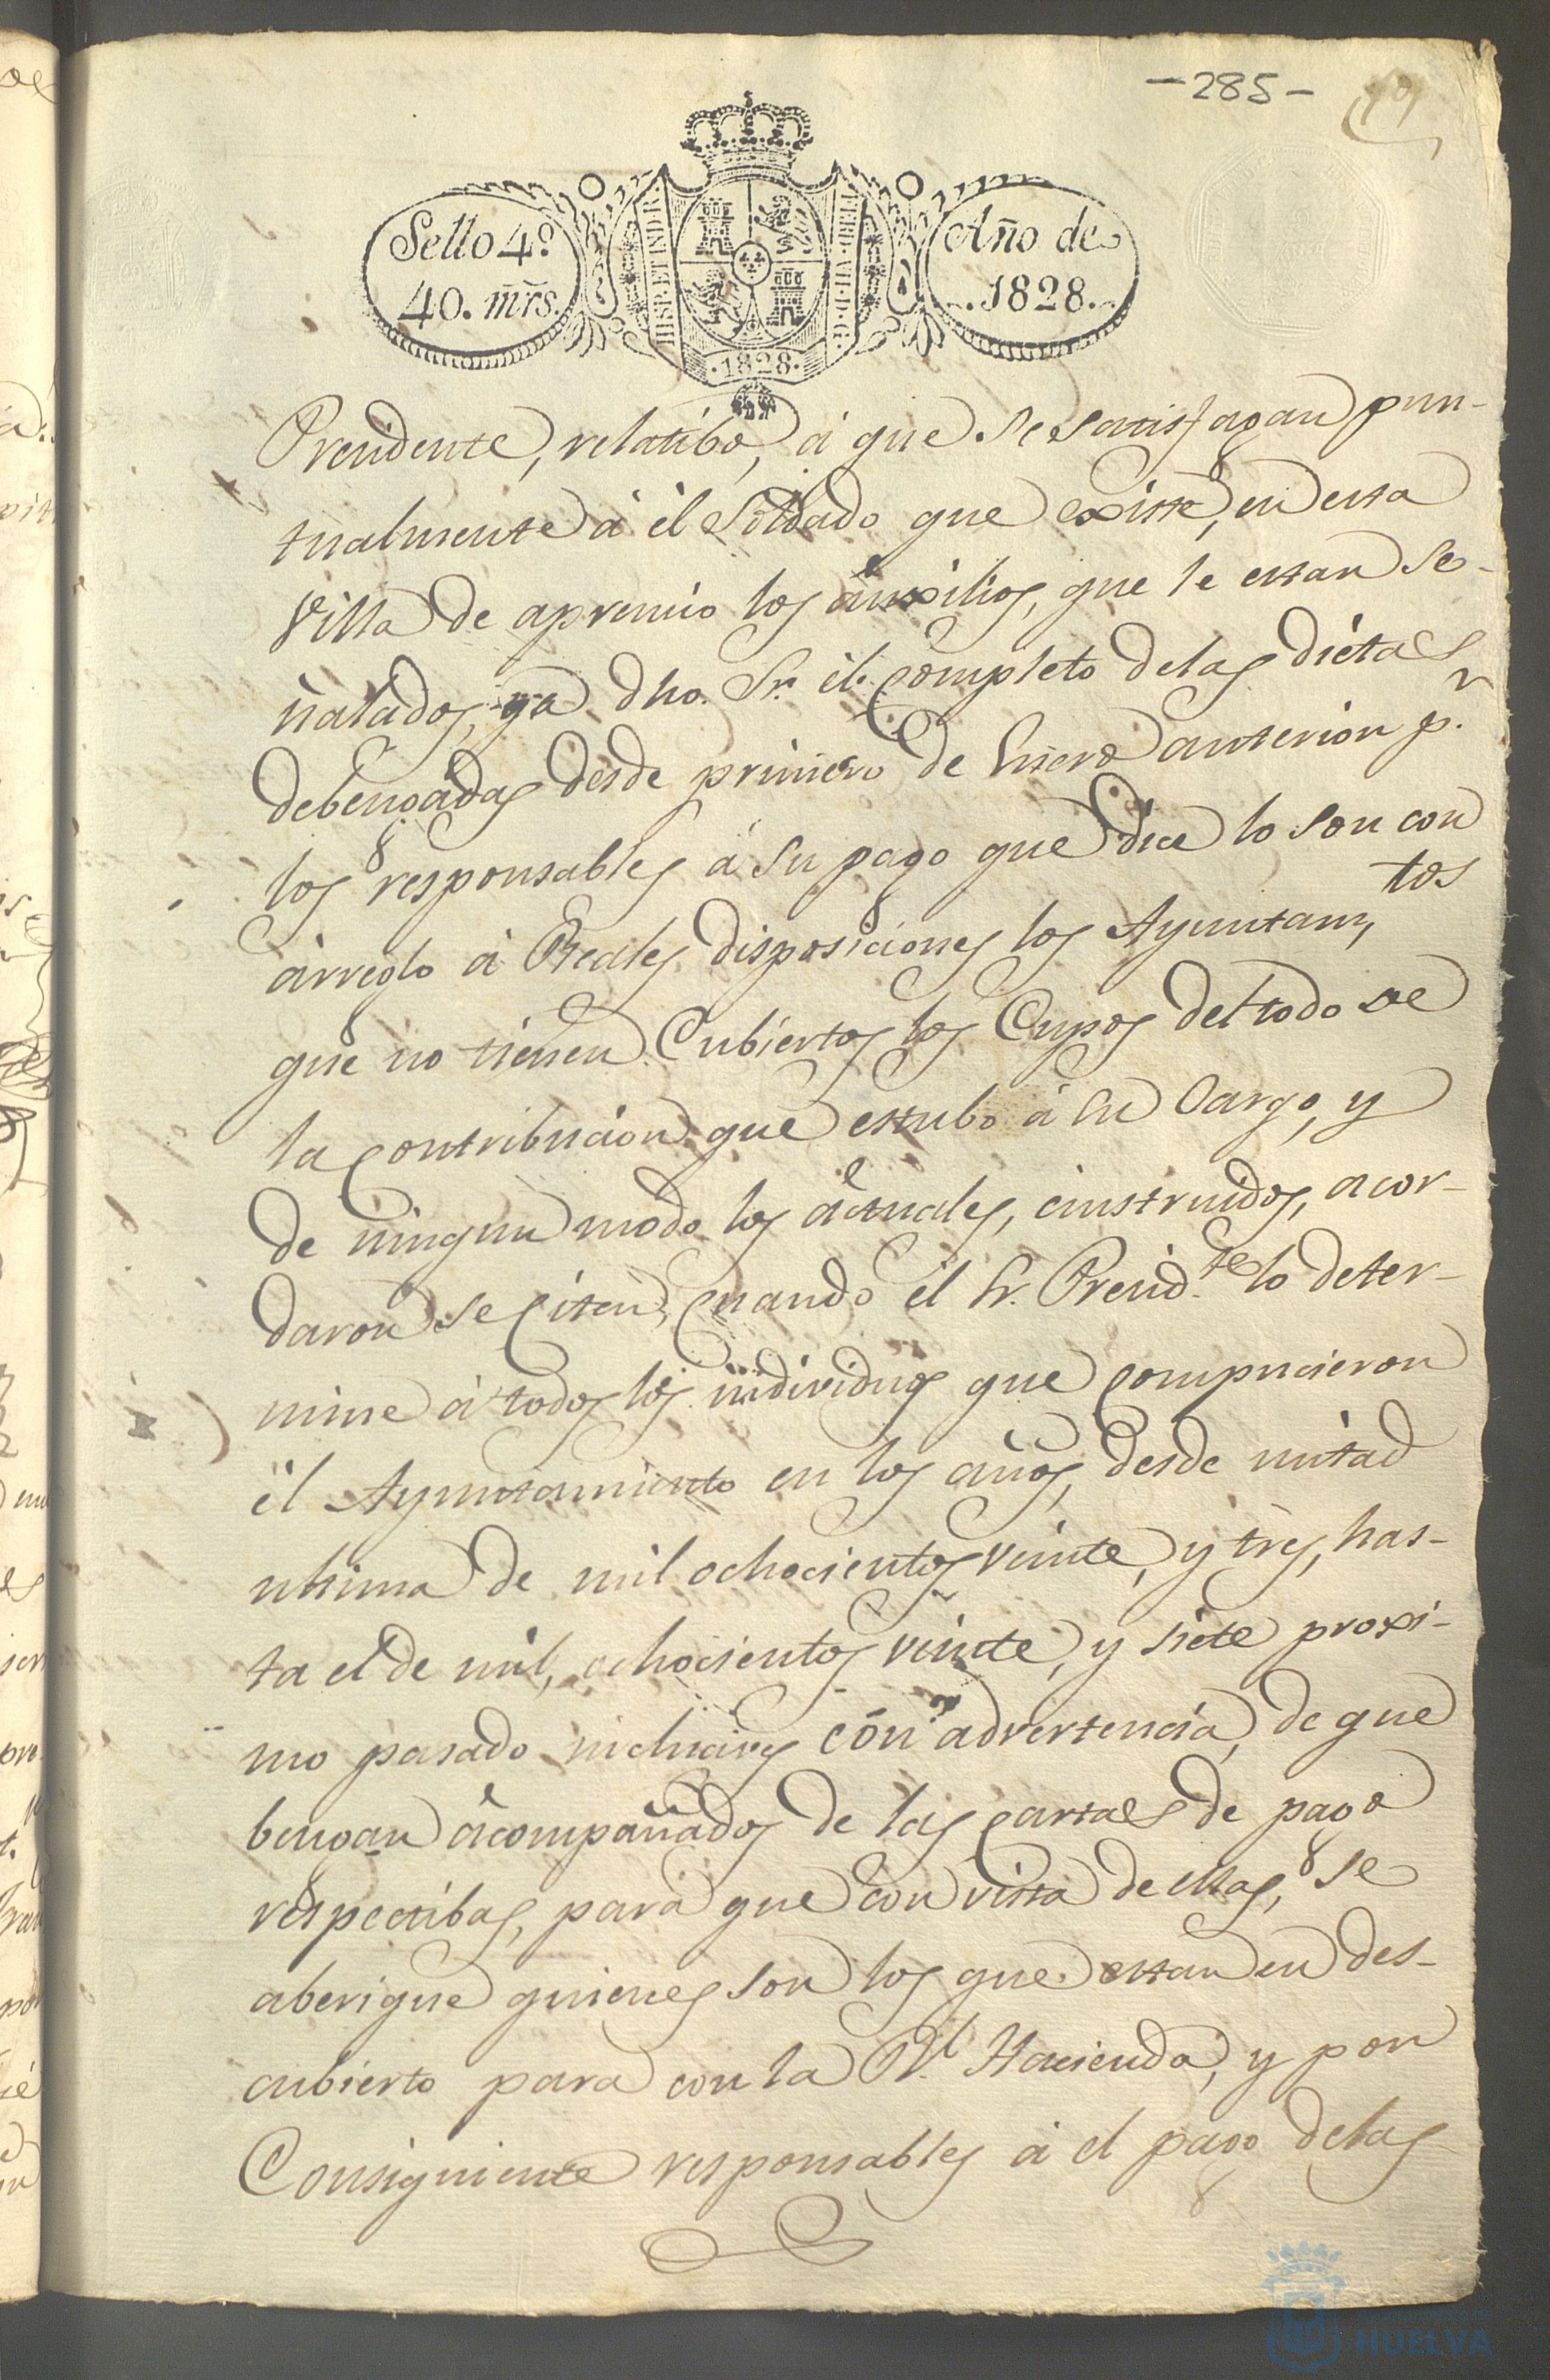 -285-
Sello 4º
40. mrs.
HISP. ET IND. R.
FERD. VII. D. G.
1828.
Año de
1828.
Presidente, relatibo, á que se satisfagan pun-
tualmente á él Soldado que existe, en esta
Villa de apremio los auxilios, que le estan se-
ñalados, y a dho. Sr. él completo de las diétas
debengadas desde primero de Enero anterior pr.
los responsables á su pago que dice lo son con
arreglo á Reales disposiciones los Ayuntam,tos
que no tienen Cubiertos los Cupos del todo de
la contribucion que estubo á su Cargo, y
de ningun modo los actuales, é instruidos, acor-
daron se Citen, quando él Sr. Presid.te lo deter-
mine á todos los individuos que compucieron
él Ayuntamiento en los años, desde mitad
ultima de mil ochocientos veinte, y tres, has-
ta el de mil, ochocientos veinte, y siete proxi-
mo pasado inclucive, con advertencia, de que
bengan acompañados de las cartas de pago
respectibas, para que con vista de ellas, se
aberigue quienes son los que estan en des-
cubierto para con la Rl. Hacienda, y por
Consiguiente responsables á el pago de las
HUELVA